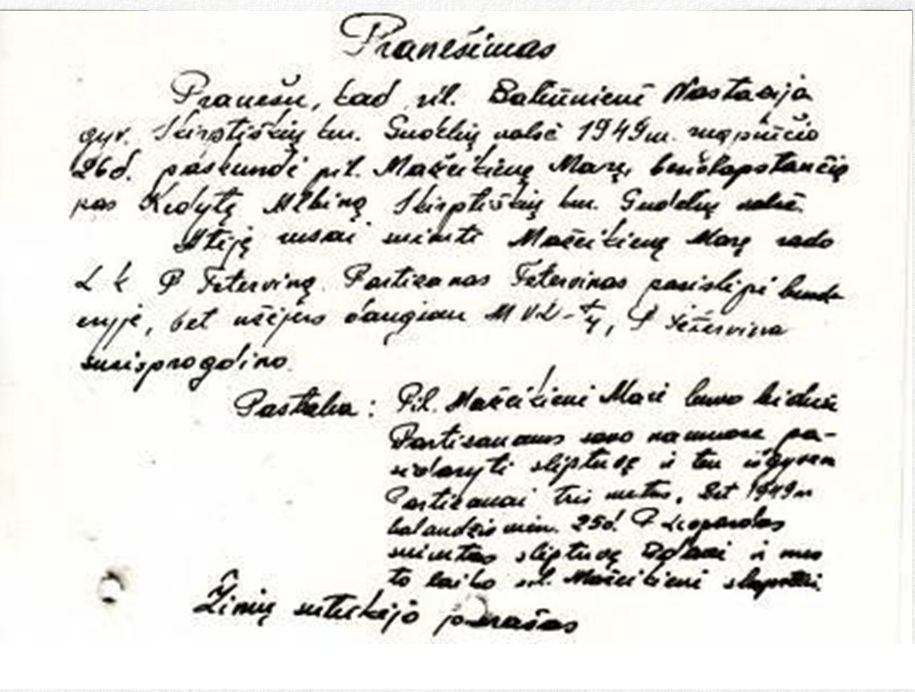 Pranešimas
Pranešu, kad pil. Balčiūnienė Nastazija
gyv. Skirptiškių km. Gudelių valsč 1949 m. rugpiučio
26 d. paskundė pil. Mažeikienę Marę, besislapstančią
pas Kedytę Albiną Skirptiškių km. Gudelių valsč.
Atėję rusai suimti Mažeikienę Marę rado
L k P Feterviną. Partizanas Fetervinas pasislėpė bunke
ryje, bet užėjus daugiau MVD-, P
susisprogdino.
Pastaba: Pil. Mažeikienė Marė buvo leidusi
Partizanams savo namuose pa-
sidaryti slėptuvę ir ten išgyveno
Partizanai tris metus. Bet 1949 m
balandžio mėn. 25 d. P Leopardas
suimtas slėptuvę ir nuo
to laiko pil. Mažeikienė slapstėsi.
Žinių suteikėjo parašas